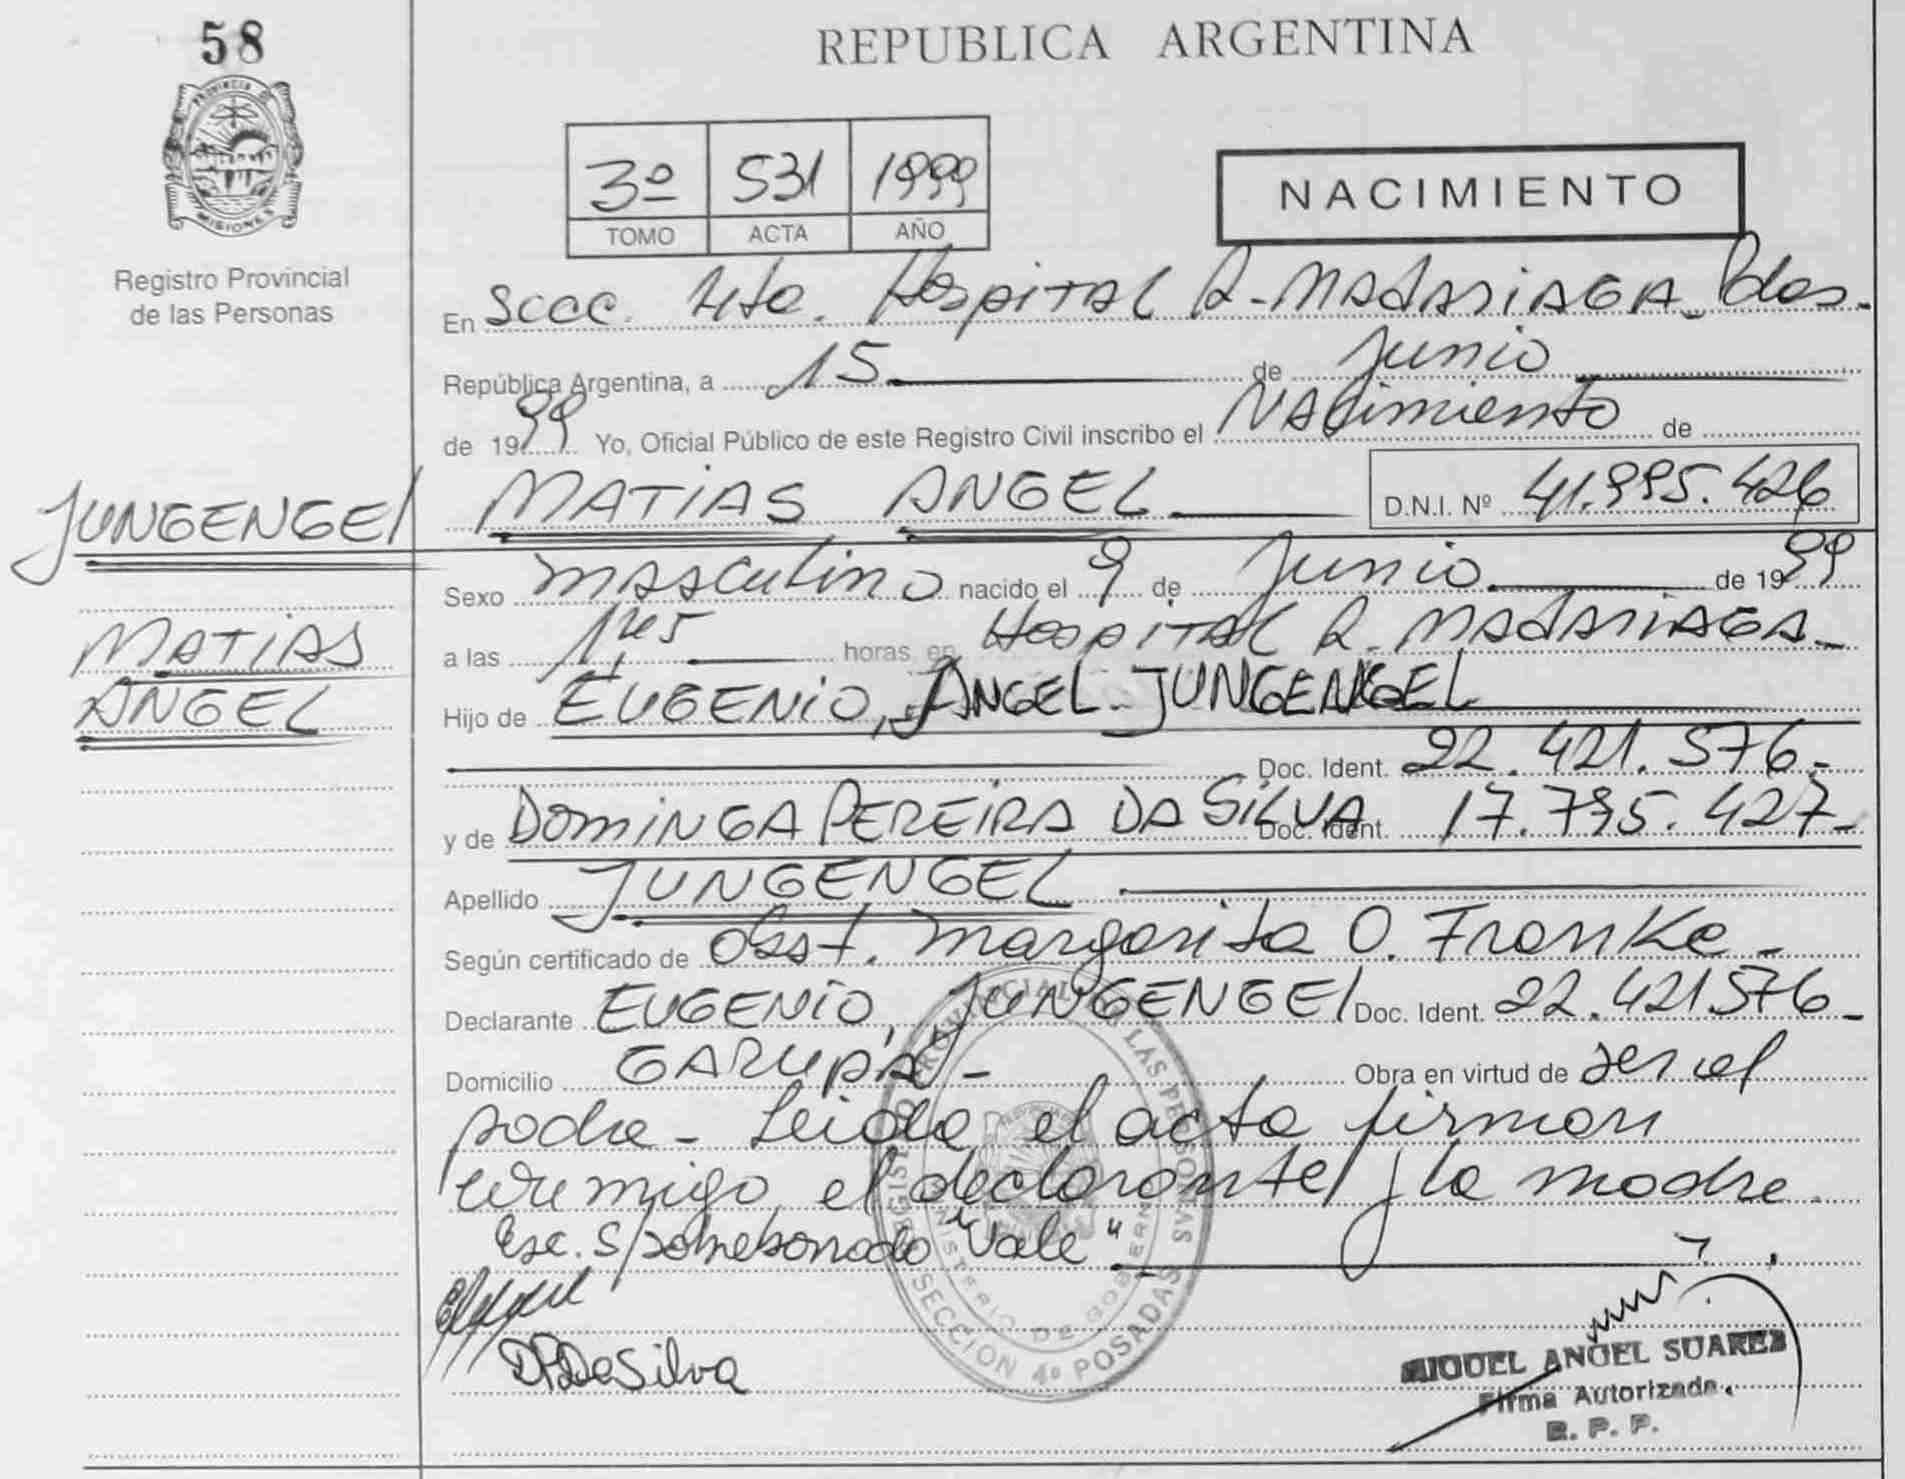 58
REPUBLICA ARGENTINA
PROVINCIA DE MISIONES
Registro Provincial
de las Personas
3º 531 1999
TOMO ACTA AÑO
NACIMIENTO
En Secc. 4ta. Hospital R. MADARIAGA Pdas.
República Argentina, a 15 de Junio
de 1999 Yo, Oficial Público de este Registro Civil inscribo el NACimiento de
JUNGENGEl MATIAS ANGEL D.N.I. Nº 41.995.426
Sexo masculino nacido el 9 de Junio de 1999
MATIAS
ANGEL
a las horas en HospITAL R. MADARIAGA
Hijo de EUGENIO, ANGEL JUNGENGEL
Doc. Ident. 22.421.576
y de DOMINGA PEREIRA DA SILVA Doc. Ident. 17.795.427
Apellido JUNGENGEL
Según certificado de Obst. Margarita O. Franke
Declarante EUGENIO, JUNGENGEl Doc. Ident. 22.421576
Domicilio GARUPA Obra en virtud de ser el
padre - Leida el acta firman
conmigo el declarante y la madre
Esc. S/sobreborrado "Vale"
REGISTRO PROVINCIAL DE LAS PERSONAS
MINISTERIO DE GOBIERNO
SECCION 4º POSADAS
DPDaSilva
MIGUEL ANGEL SUAREZ
Firma Autorizada
R. P. P.